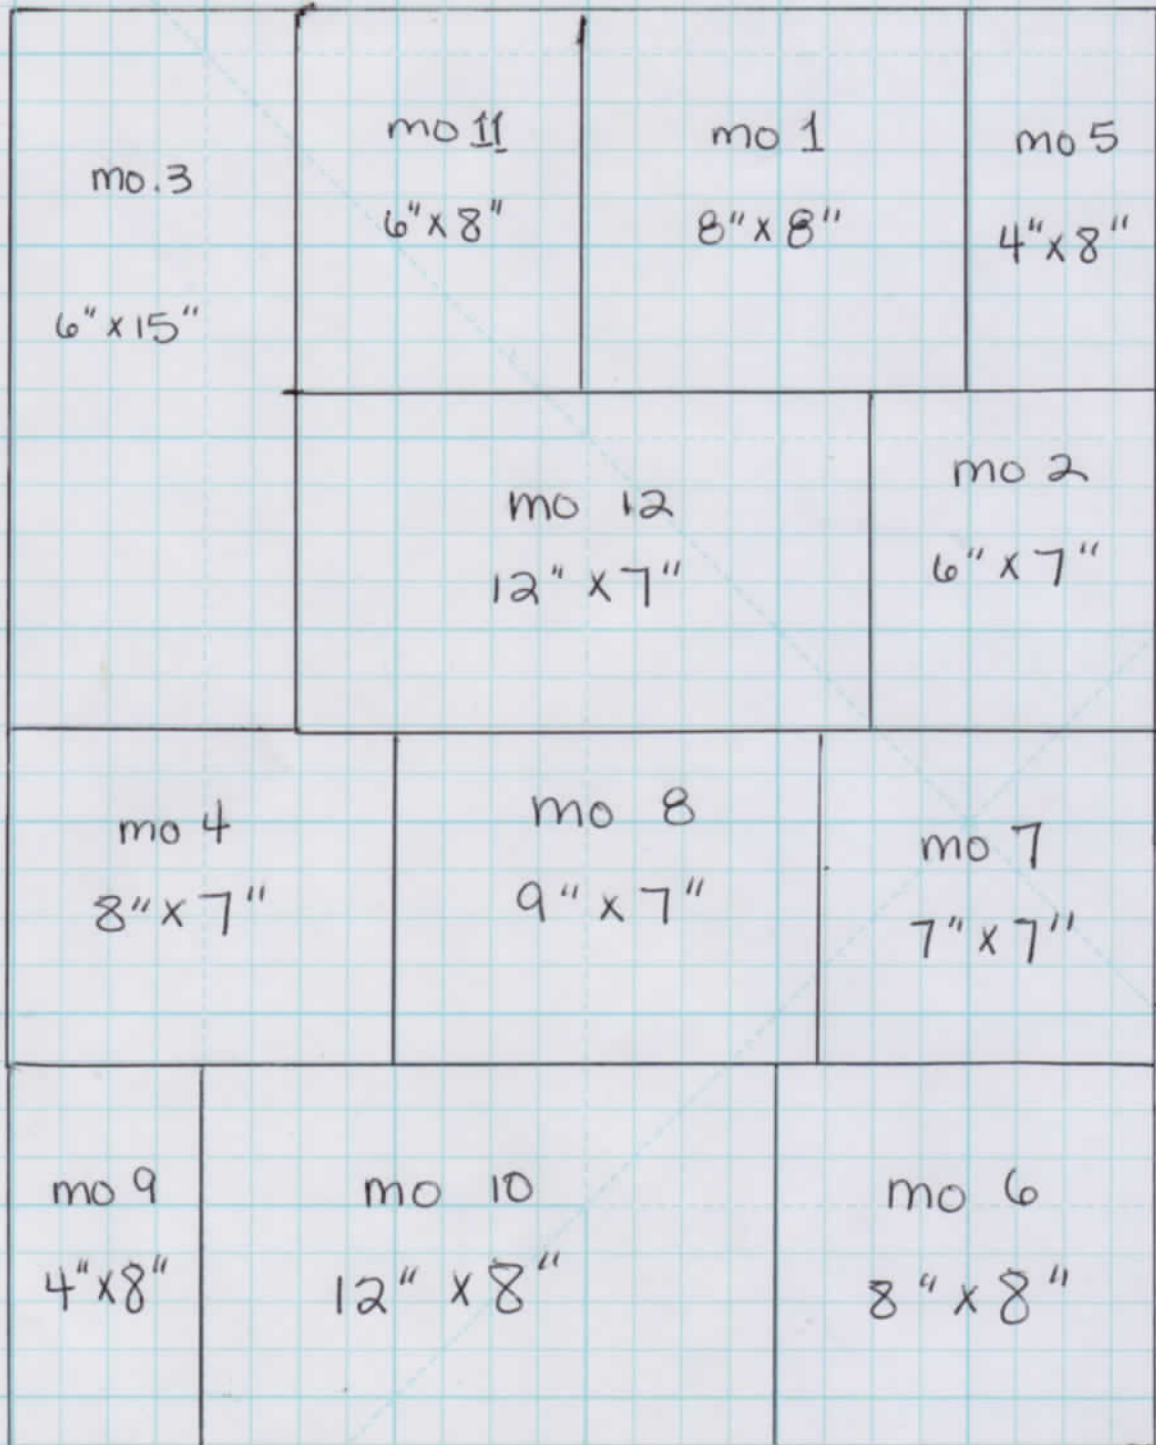 mo.3
6" x 15"
mo 11
6" x 8"
mo 1
8" x 8"
mo 5
4" x 8"
mo 12
12" x 7"
mo 2
6" x 7"
mo 4
8" x 7"
mo 8
9" x 7"
mo 7
7" x 7"
mo 9
4" x 8"
mo 10
12" x 8"
mo 6
8" x 8"